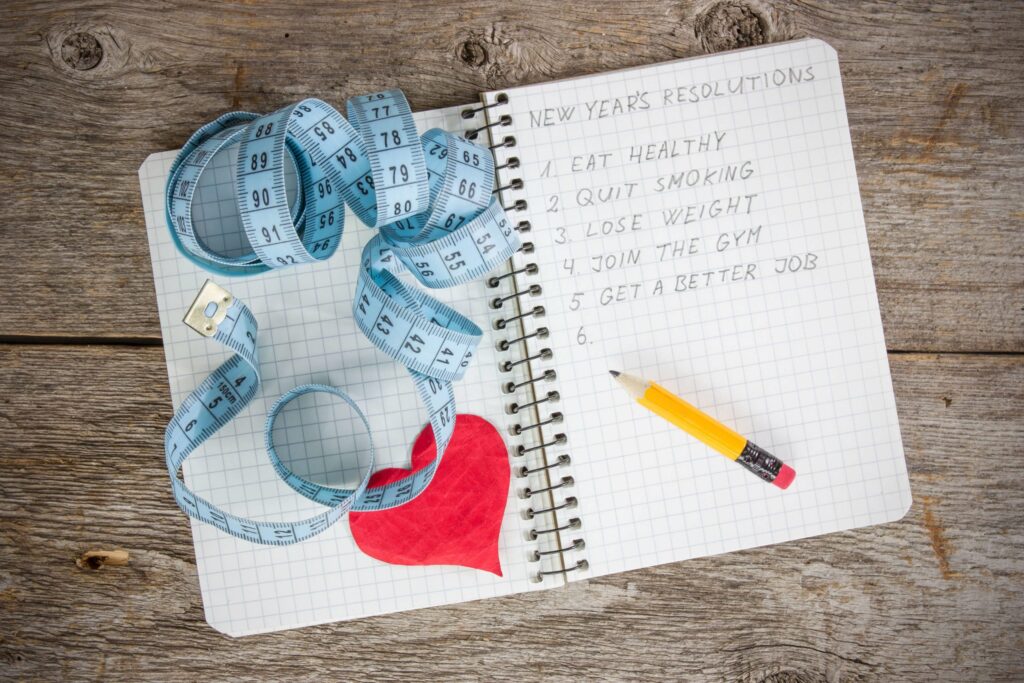 NEW YEAR'S RESOLUTIONS
1. EAT HEALTHY
2. QUIT SMOKING
3. LOSE WEIGHT
4. JOIN THE GYM
5 GET A BETTER JOB
6.
76
77
78
79
80
88
89
90
91
92
85
84
83
96
95
94
62
65
66
53
54
55
56
44
43
42
41
40
29
4
150cm
5
6
11
12
25
24